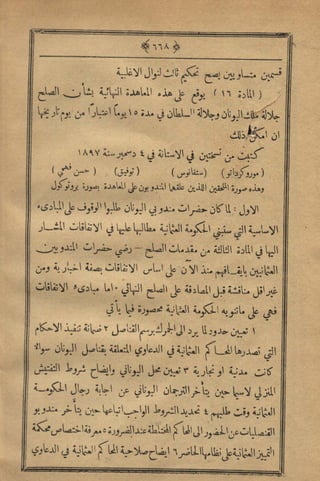 ﴿ ٦٦٨ ﴾
قسمين متساويين يصح تحكيم ثالث لنوال الاغلبية
( المادة ١٦ ) يوقع على هذه المعاهدة النهائية بشأن الصلح
جلالة ملك اليونان وجلالة السلطان في مدة ١٥ يوماً اعتباراً من يوم تاريخها
ان امكن ذلك
كتبت من نسختين في الاستانة في ٤ دسمبر سنة ١٨٩٧
( موروكرداتو ) ( ستفانوس ) ( توفيق ) ( حسن فهمي )
وهذه صورة الملحقين اللذين علقها المندوبون على المعاهدة بصورة بروتوكول
الاول : لما كان حضرات مندوبي اليونان طلبوا الوقوف على المبادىء
الاساسية التي ستبني الحكومة العثمانية مطالبها عليها في الاتفاقات المشار
اليها في المادة الثالثة من مقدمات الصلح – رضي حضرات المندوبين
العثمانيين بايقافهم منذ الآن على اساس الاتفاقات بصفة اخبارية ومن
غير اقل مناقشة قبل المصادقة على الصلح النهائي ٠ اما مبادىء الاتفاقات
فهي على ما تنويه الحكومة العثمانية محصورة فيما يأتي
١ تعيين حدود لما يرد الى الجمرك برسم القناصل ٢ ضمانة تنفيذ الاحكام
التي تصدرها المحاكم العثمانية في الدعاوي المتعلقة بقناصل اليونان سواء
كانت مدنية او تجارية ٣ تعيين محل اليوناني وايضاح شروط التفتيش
المنزلي لاسيما حين يتأخر الترجمان اليوناني عن اجابة رجال الحكومة
العثمانية وقت طلبهم ٤ تحديد الشروط الواجب اتباعها حين يتأخر مندوبو
القنصليات عن الحضور الى المحاكم المختلطة عند الضرورة ٥ معرفة اختصاص محكمة
التمييز العثمانية على نظامها الحاضر ٦ ايضاح صلاحية المحاكم العثمانية في الدعاوي